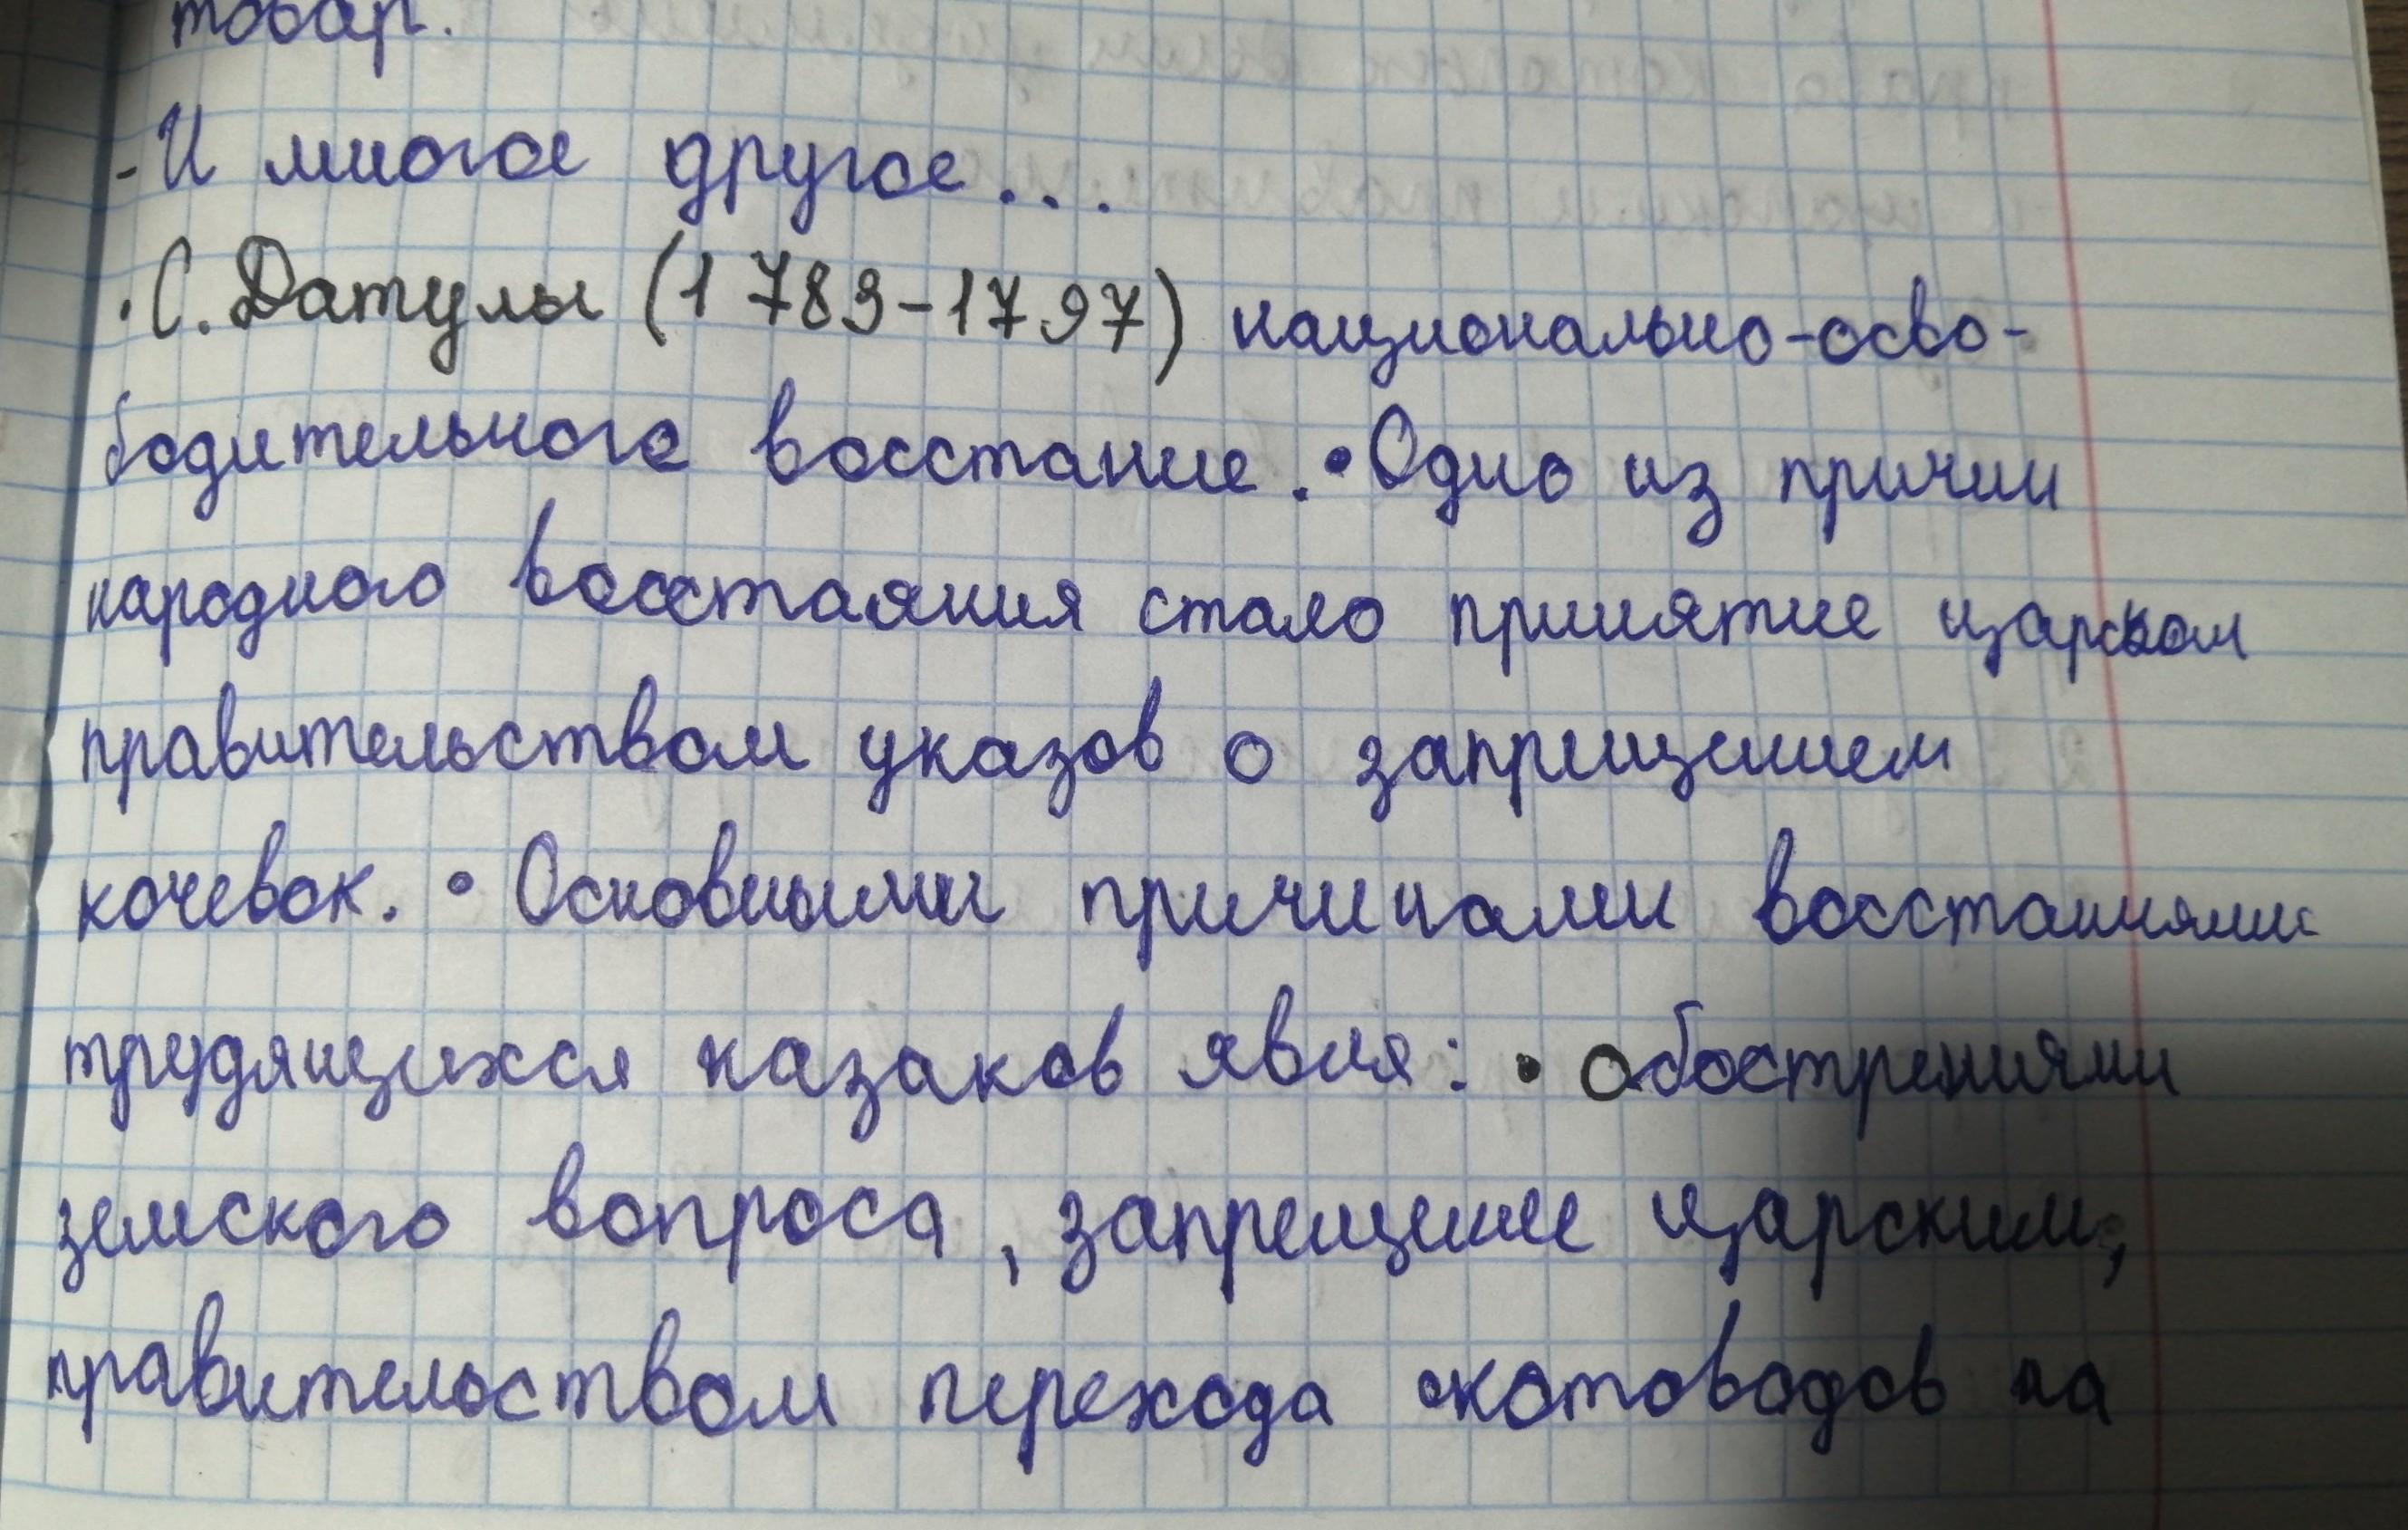 товар.
- И многое другое...
· С. Датулы (1783-1797) национально-осво-
бодительного восстание. • Одно из причин
народного восстаяния стало принятие царском
правительством указов о запрещением
кочевок. • Основными причинами восстаниями
трудящихся казаков явля: • Обострениями
земского вопроса, запрещение царским,
правительством перехода скотоводов на